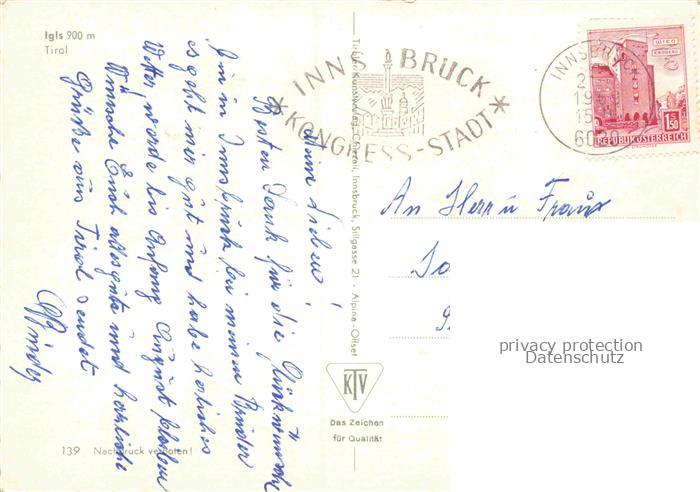 Igls 900 m
Tirol
Meine Lieben!
Besten Dank für die Glückwünsche
Bin in Innsbruck bei meinem Bruder
es geht mir gut und habe herliches
Wetter werde bis Anfang August bleiben
Wünsche Euch alles gute und herzliche
Grüße aus Tirol sendet
139 Nachdruck verboten!
Tiroler Kunstverlag Chizzali, Innsbruck, Sillgasse 21 - Alpina-Offset
KTV
Das Zeichen
für Qualität
INNSBRUCK
* KONGRESS-STADT *
INNSBRUCK
6020
WIEN
ERDBERG
1.50
REPUBLIK ÖSTERREICH
An Herr u Frau
privacy protection
Datenschutz